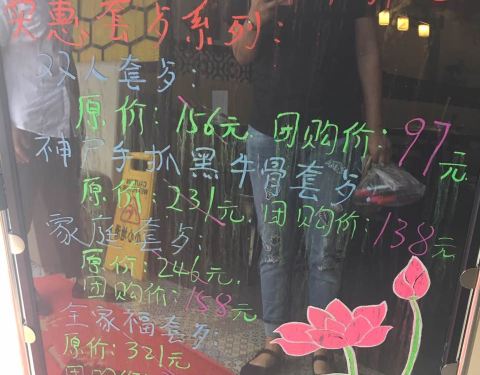 实惠套歺系列:
双人套歺:
原价:156元 团购价:97元
神户手抓黑牛骨套歺
原价:231元 团购价:138元
家庭套歺:
原价:246元.
团购价:158元
全家福套歺:
原价:321元
团购价: